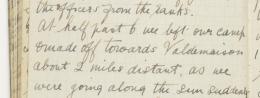 the officers from the ranks.
At half past 6 we left our camp
& made off towards Valdemaison
about 2 miles distant, as we
were going along the sun suddenly